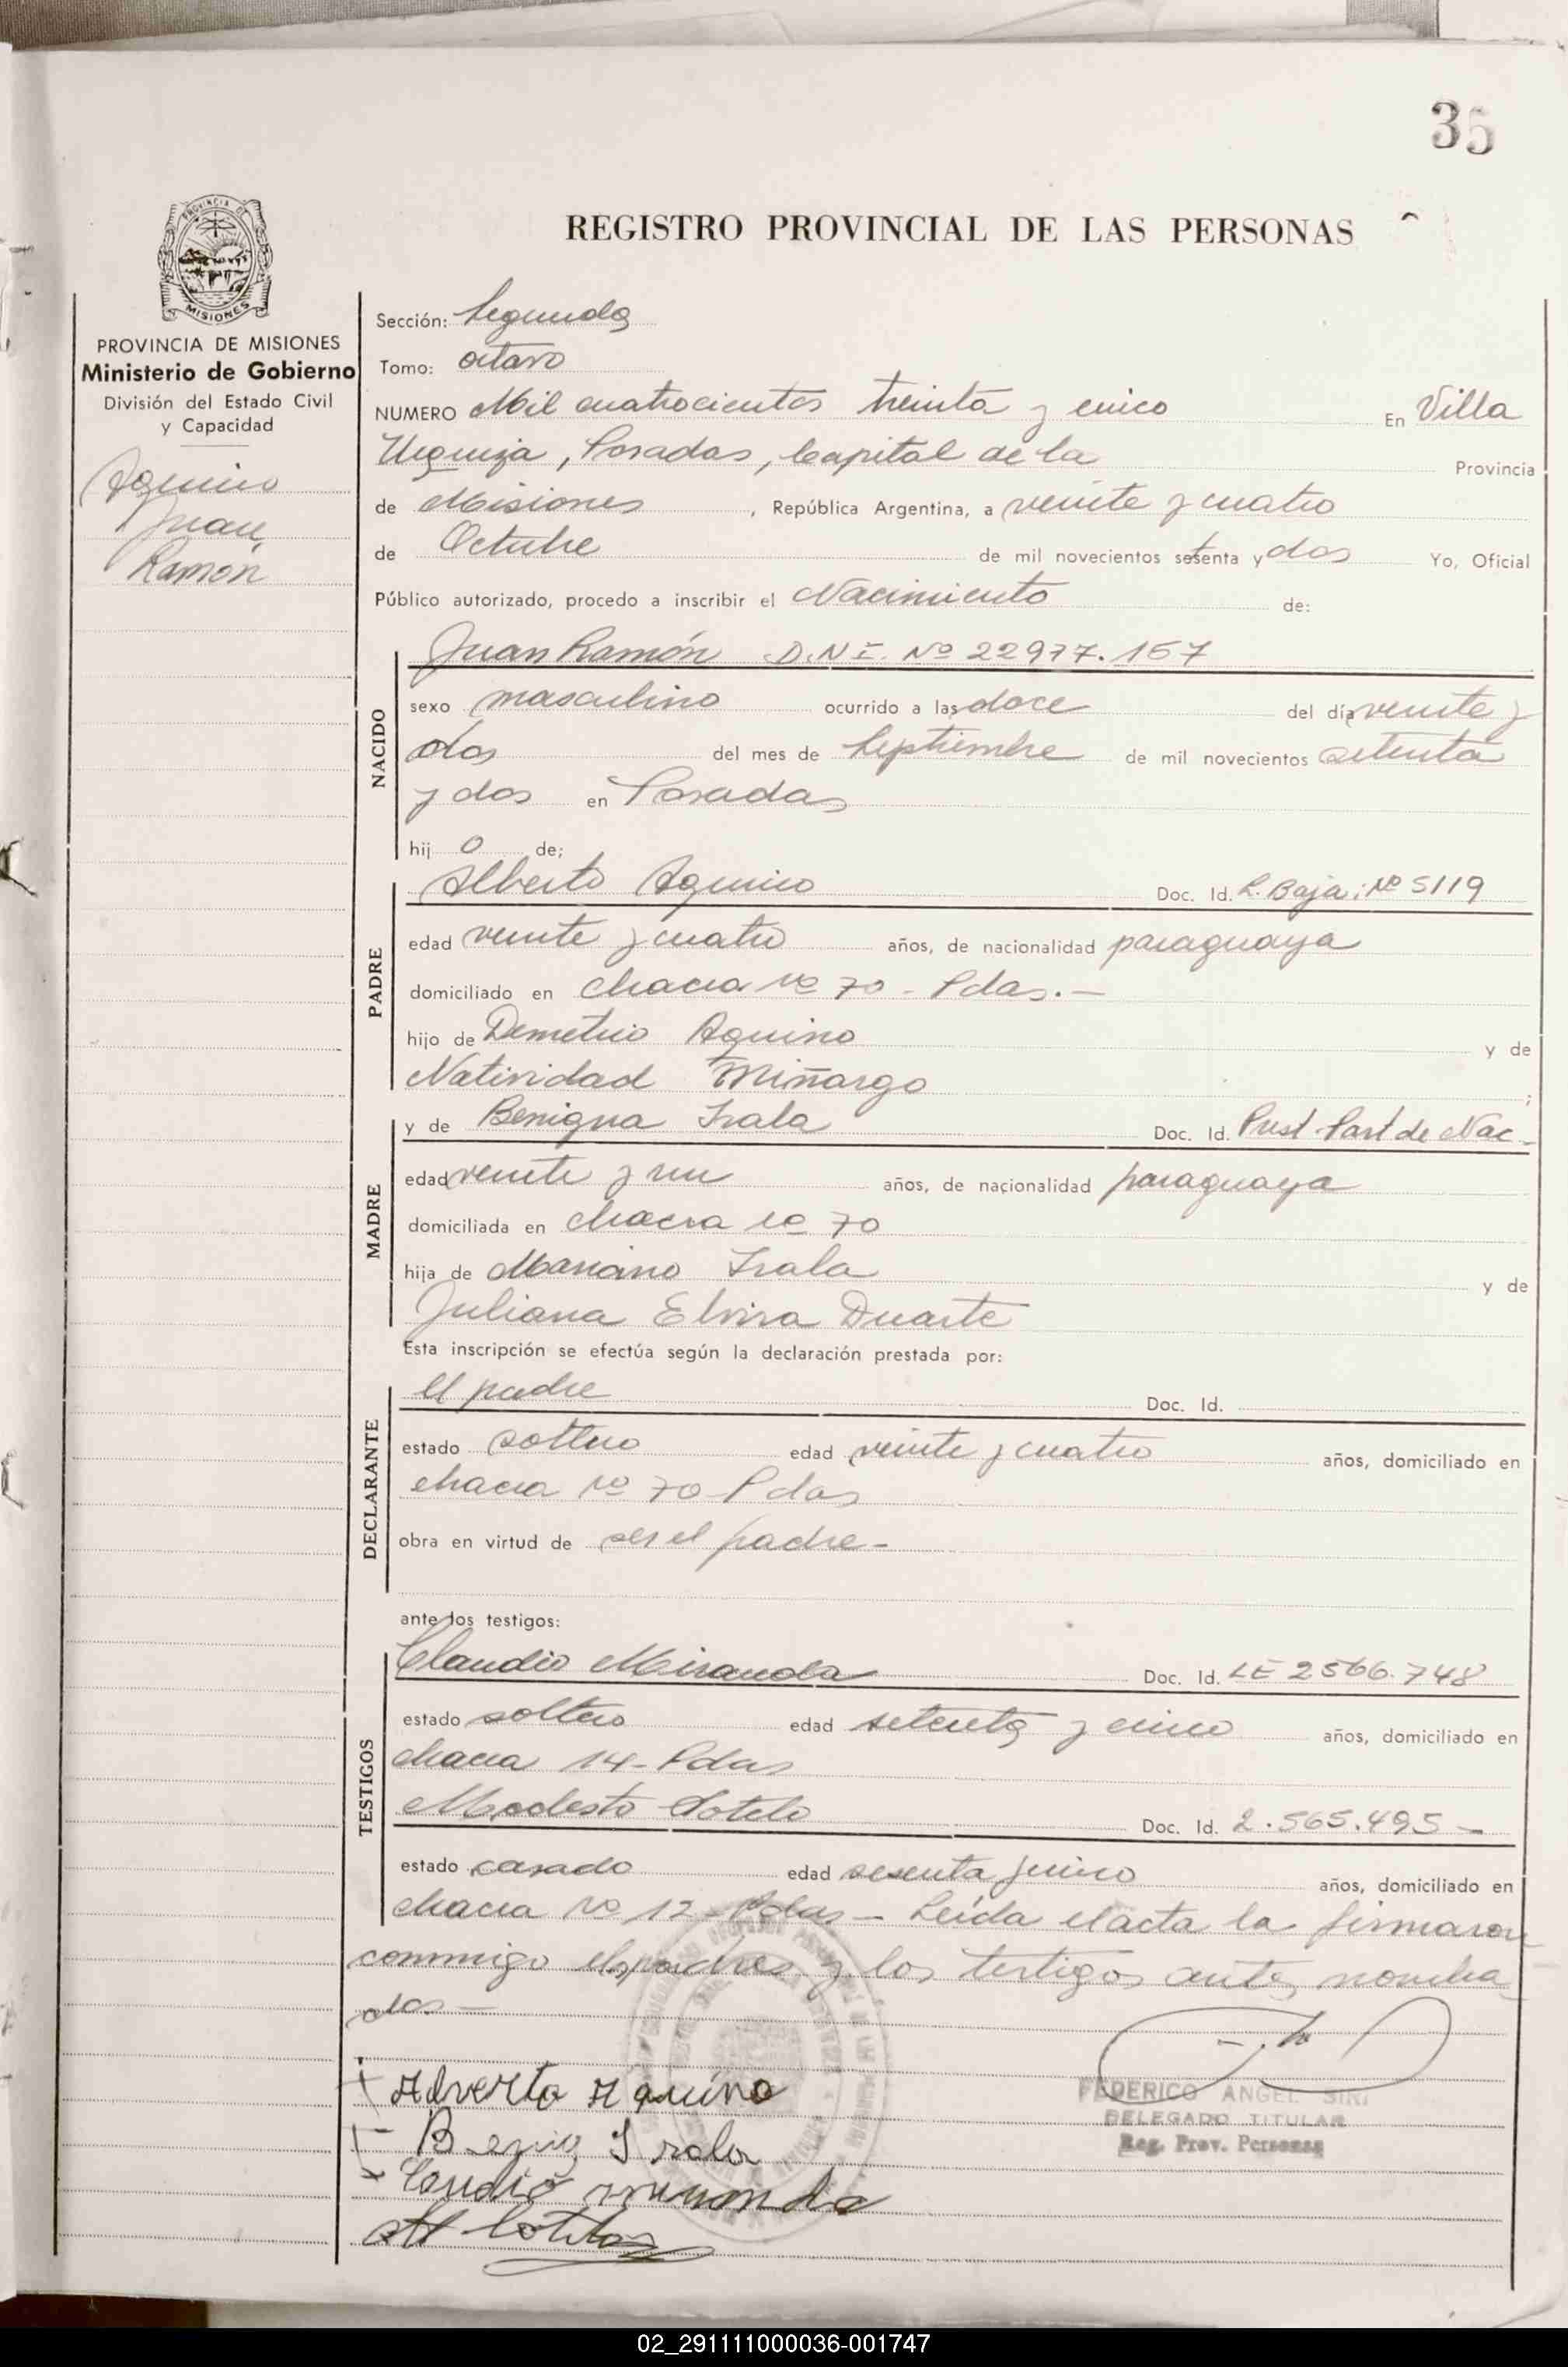 35
REGISTRO PROVINCIAL DE LAS PERSONAS
PROVINCIA DE MISIONES
Ministerio de Gobierno
División del Estado Civil
y Capacidad
Aquino
Juan
Ramón
Sección: Segunda
Tomo: octavo
NUMERO Mil cuatrocientos treinta y cinco En Villa
Urquiza, Posadas, Capital de la Provincia
de Misiones, República Argentina, a veinte y cuatro
de Octubre de mil novecientos setenta y dos Yo, Oficial
Público autorizado, procedo a inscribir el Nacimiento de:
NACIDO
Juan Ramón D.N.I. Nº 22977.157
sexo masculino ocurrido a las doce del día veinte y
dos del mes de Septiembre de mil novecientos setenta
y dos en Posadas
hij o de;
PADRE
Alberto Aquino Doc. Id. L. Baja: Nº 5119
edad veinte y cuatro años, de nacionalidad paraguaya
domiciliado en chacra Nº 70 - Pdas.-
hijo de Demetrio Aquino y de
Natividad Miñargo ;
MADRE
y de Benigna Irala Doc. Id. Part de Nac-
edad veinte y un años, de nacionalidad paraguaya
domiciliada en chacra Nº 70
hija de Mariano Irala y de
Juliana Elvira Duarte
Esta inscripción se efectúa según la declaración prestada por:
DECLARANTE
el padre Doc. Id.
estado soltero edad veinte y cuatro años, domiciliado en
chacra Nº 70 Pdas
obra en virtud de ser el padre-
ante los testigos:
TESTIGOS
Claudio Miranda Doc. Id. LE 2566.748
estado soltero edad setenta y cinco años, domiciliado en
chacra 14- Pdas
Modesto Sotelo Doc. Id. 2.565.495-
estado casado edad sesenta y cinco años, domiciliado en
chacra Nº 12- Pdas- Leída el acta la firmaron
conmigo los padres y los testigos antes nombra
dos.-
Alverto Aquino
Irala
miranda
FEDERICO ANGEL SIRI
DELEGADO TITULAR
Reg. Prov. Personas
02_291111000036-001747